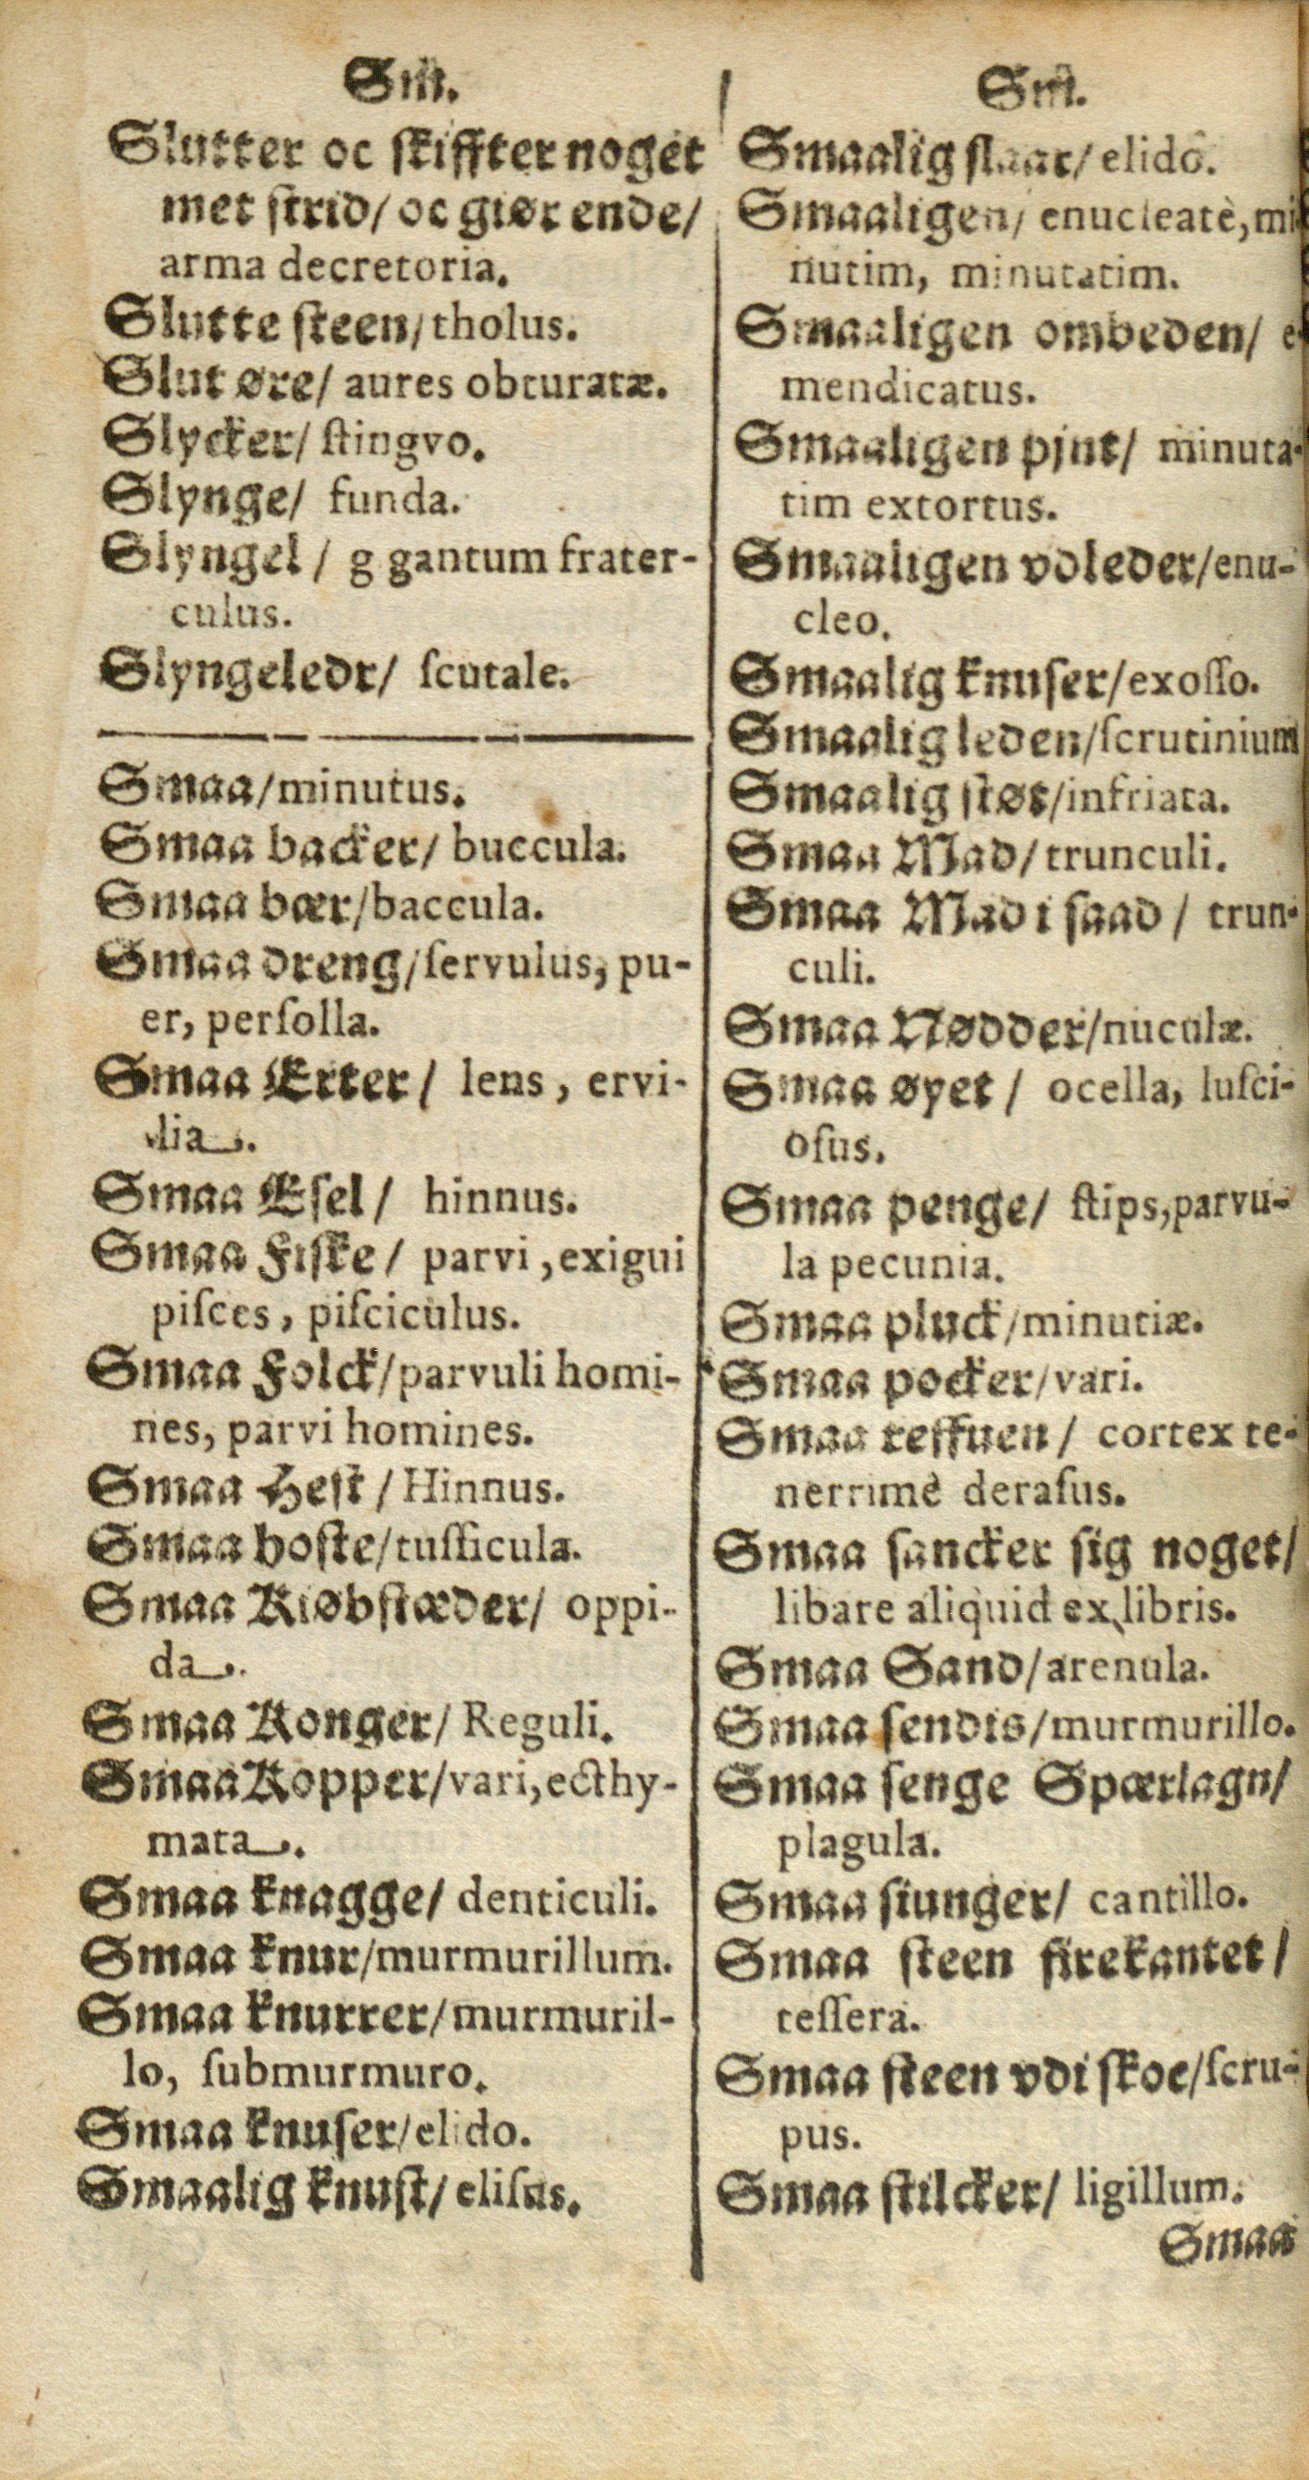 Sm.
Slutter oc skiffter noget
met strid/ oc giør ende/
arma decretoria.
Slutte steen/ tholus.
Slut øre/ aures obturatæ.
Slycker/ stingvo.
Slynge/ funda.
Slyngel / g gantum frater-
culus.
Slyngeledr/ ſcutale.
Smaa/minutus.
Smaa backer/ buccula.
Smaa bær/baccula.
Smaa dreng/ſervulus, pu-
er, perſolla.
Smaa Erter/ lens, ervi-
lia.
Smaa Esel/ hinnus.
Smaa Fiſke/ parvi, exigui
piſces, piſciculus.
Smaa Folck/parvuli homi-
nes, parvi homines.
Smaa Hest/Hinnus.
Smaa hoste/tuſſicula.
Smaa Kiøbstæder/ oppi-
da.
Smaa Konger/ Reguli.
Smaa Kopper/vari, ecthy-
mata.
Smaa knagge/ denticuli.
Smaa knur/murmurillum.
Smaa knurrer/murmuril-
lo, ſubmurmuro.
Smaa knuſer/elido.
Smaalig knust/ eliſus.
Sm.
Smaalig slaar/ elido.
Smaaligen/ enucleatè, mi-
nutim, minutatim.
Smaaligen ombeden/ e-
mendicatus.
Smaaligen pjnt/ minuta-
tim extortus.
Smaaligen vdleder/enu-
cleo.
Smaalig knuſer/exoſſo.
Smaalig leden/ſcrutinium
Smaalig støt/infriata.
Smaa Mad/trunculi.
Smaa Mad i saad / trun-
culi.
Smaa Nødder/nuculæ.
Smaa øyet / ocella, luſci-
oſus.
Smaa penge/ stips, parvu-
la pecunia.
Smaa pluck/minutiæ.
Smaa pocker/vari.
Smaa reffuen/ cortex te-
nerrimè deraſus.
Smaa sancker sig noget/
libare aliquid ex libris.
Smaa Sand/arenula.
Smaa sendis/murmurillo.
Smaa senge Spærlagn/
plagula.
Smaa siunger/ cantillo.
Smaa steen firekantet/
teſſera.
Smaa steen vdi skoe/ſcru-
pus.
Smaa stilcker/ ligillum.
Smaa